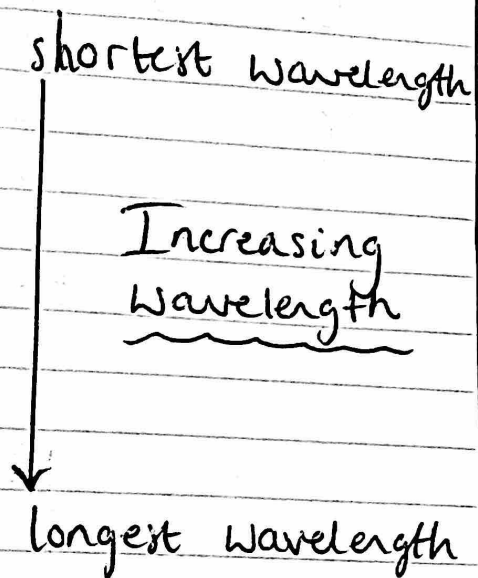 shortest wavelength
Increasing
wavelength
longest wavelength